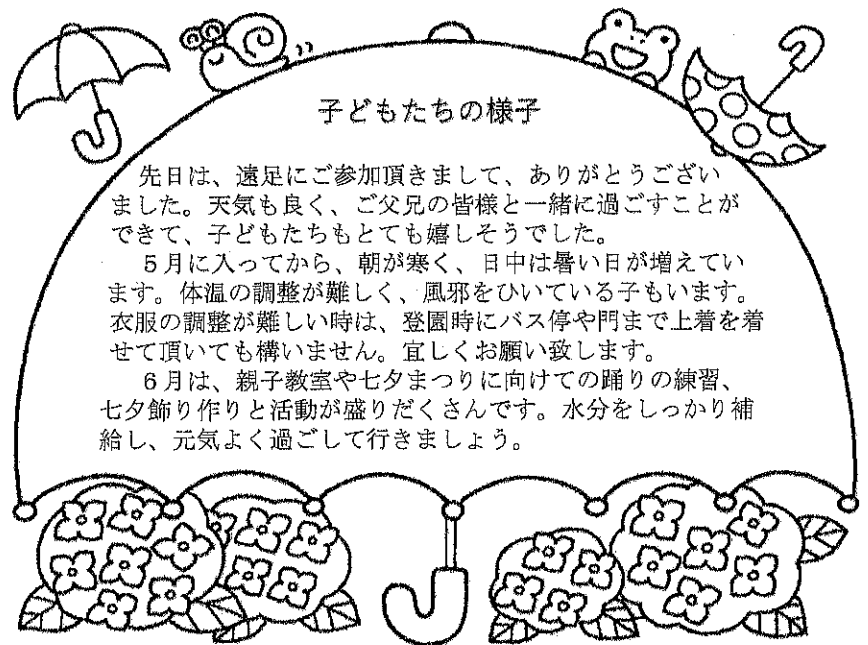 子どもたちの様子
先日は、遠足にご参加頂きまして、ありがとうござい
ました。天気も良く、ご父兄の皆様と一緒に過ごすことが
できて、子どもたちもとても嬉しそうでした。
５月に入ってから、朝が寒く、日中は暑い日が増えてい
ます。体温の調整が難しく、風邪をひいている子もいます。
衣服の調整が難しい時は、登園時にバス停や門まで上着を着
せて頂いても構いません。宜しくお願い致します。
６月は、親子教室や七夕まつりに向けての踊りの練習、
七夕飾り作りと活動が盛りだくさんです。水分をしっかり補
給し、元気よく過ごして行きましょう。